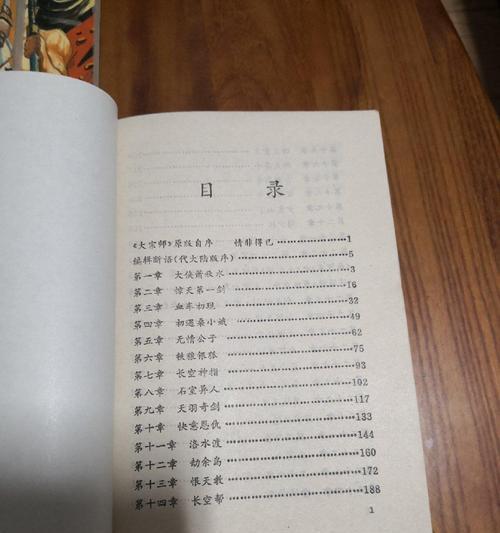 目 录
《大宗师》原版自序 情非得已…………1
编辑断语(代大陆版序)…………5
第一章 大侠萧秋水…………3
第二章 惊天第一剑…………16
第三章 血车初现…………32
第四章 初遇桑小娥…………49
第五章 无情公子…………62
第六章 铁狼银狐…………75
第七章 长空神指…………93
第八章 石室异人…………102
第九章 天羽奇剑…………117
第十章 快意恩仇…………133
第十一章 洛水渡…………144
第十二章 劫余岛…………160
第十三章 恨天教…………172
第十四章 长空帮…………188
1